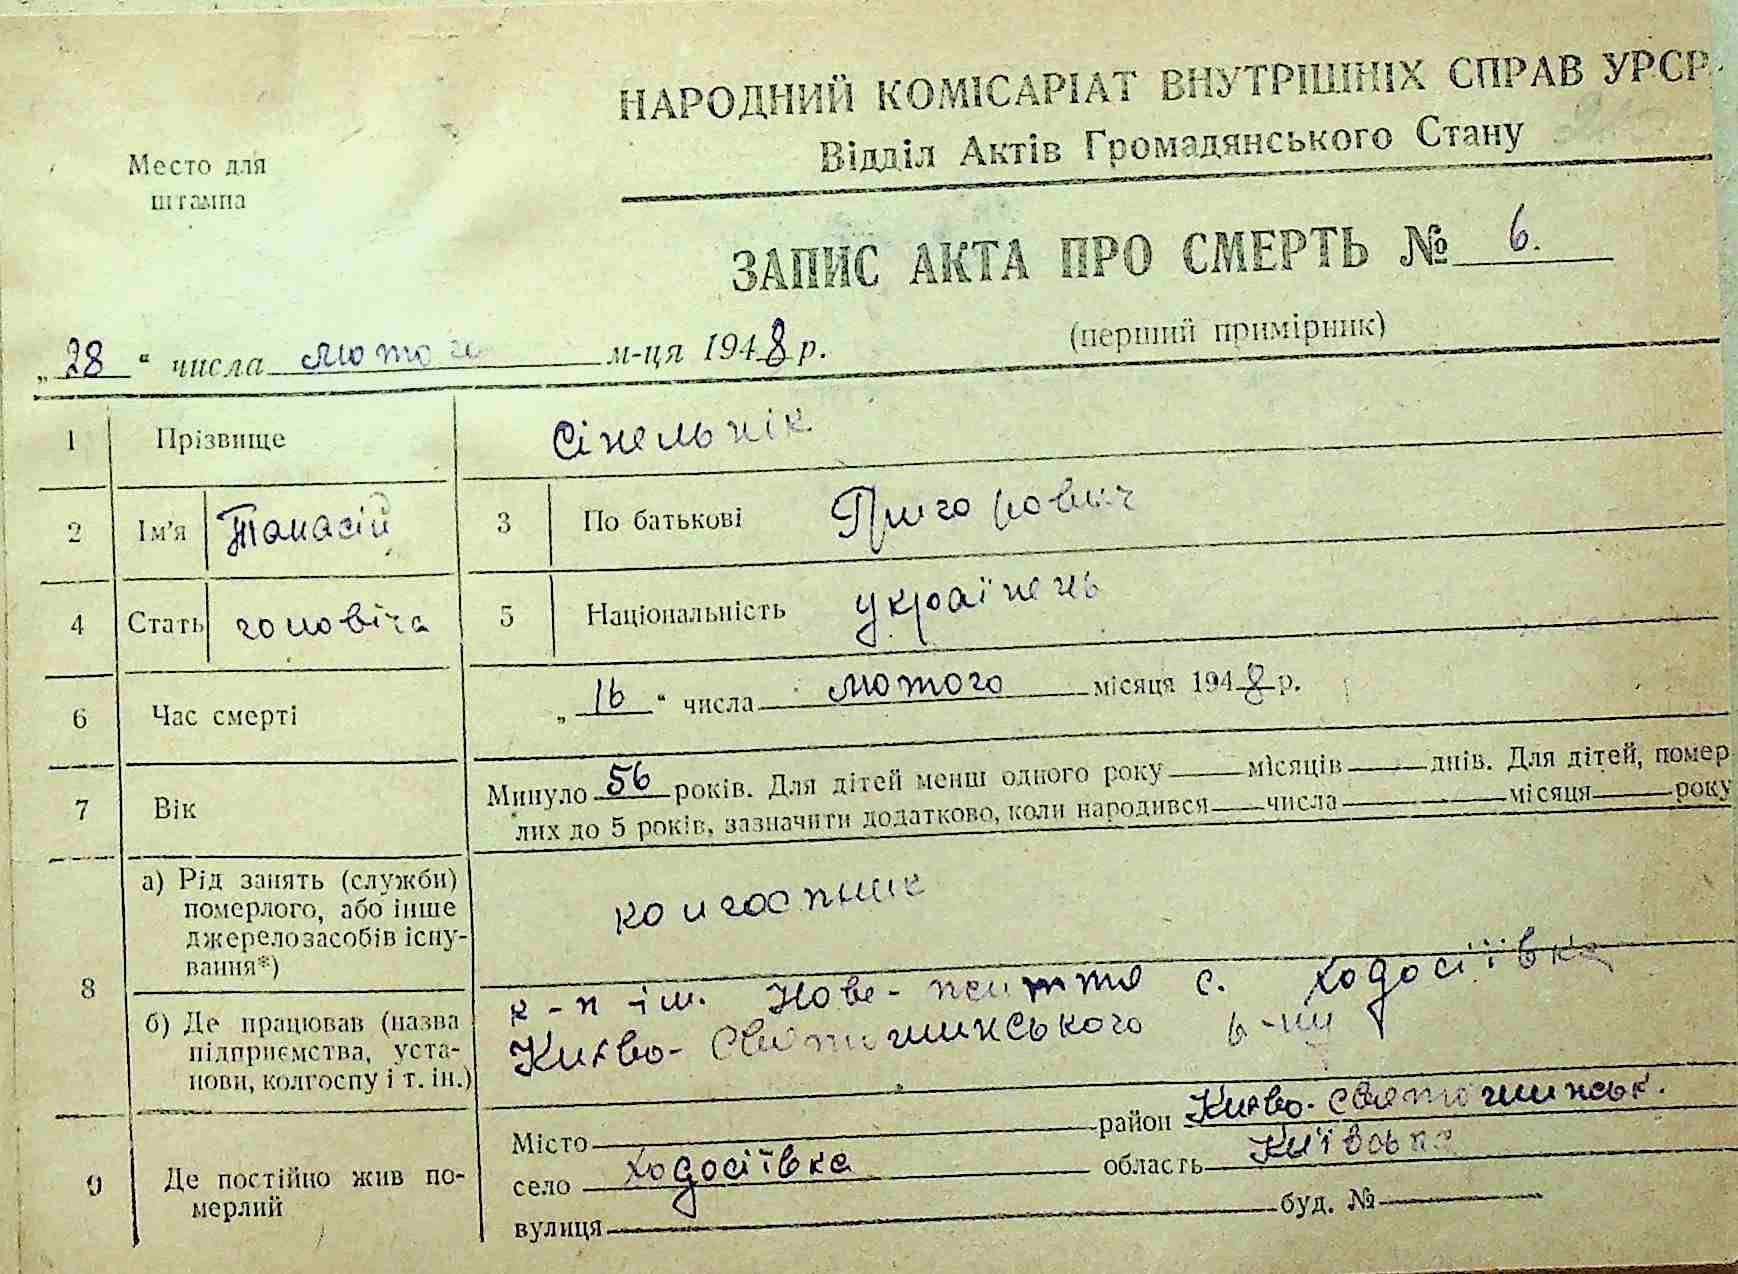 НАРОДНИЙ КОМІСАРІАТ ВНУТРІШНІХ СПРАВ УРСР.
Відділ Актів Громадянського Стану
Место для
штампа
ЗАПИС АКТА ПРО СМЕРТЬ № 6.
(перший примірник)
„28 “ числа лютого м-ця 1948 р.
1 Прізвище Сінельнік
2 Ім'я Танасій 3 По батькові Григорович
4 Стать чоловіча 5 Національність українець
6 Час смерті „ 16 “ числа лютого місяця 1948 р.
7 Вік Минуло 56 років. Для дітей менш одного року місяців днів. Для дітей, помер
лих до 5 років, зазначити додатково, коли народився числа місяця року
8 а) Рід занять (служби)
померлого, або інше
джерело засобів існу-
вання*)
колгоспник
б) Де працював (назва
підприємства, уста-
нови, колгоспу і т. ін.)
к-п ім. Нове-життя с. Ходосіївка
Києво-Святошинського р-ну
9 Де постійно жив по-
мерлий
Місто район Києво-Святошинськ.
село Ходосіївка область Київська
вулиця буд. №